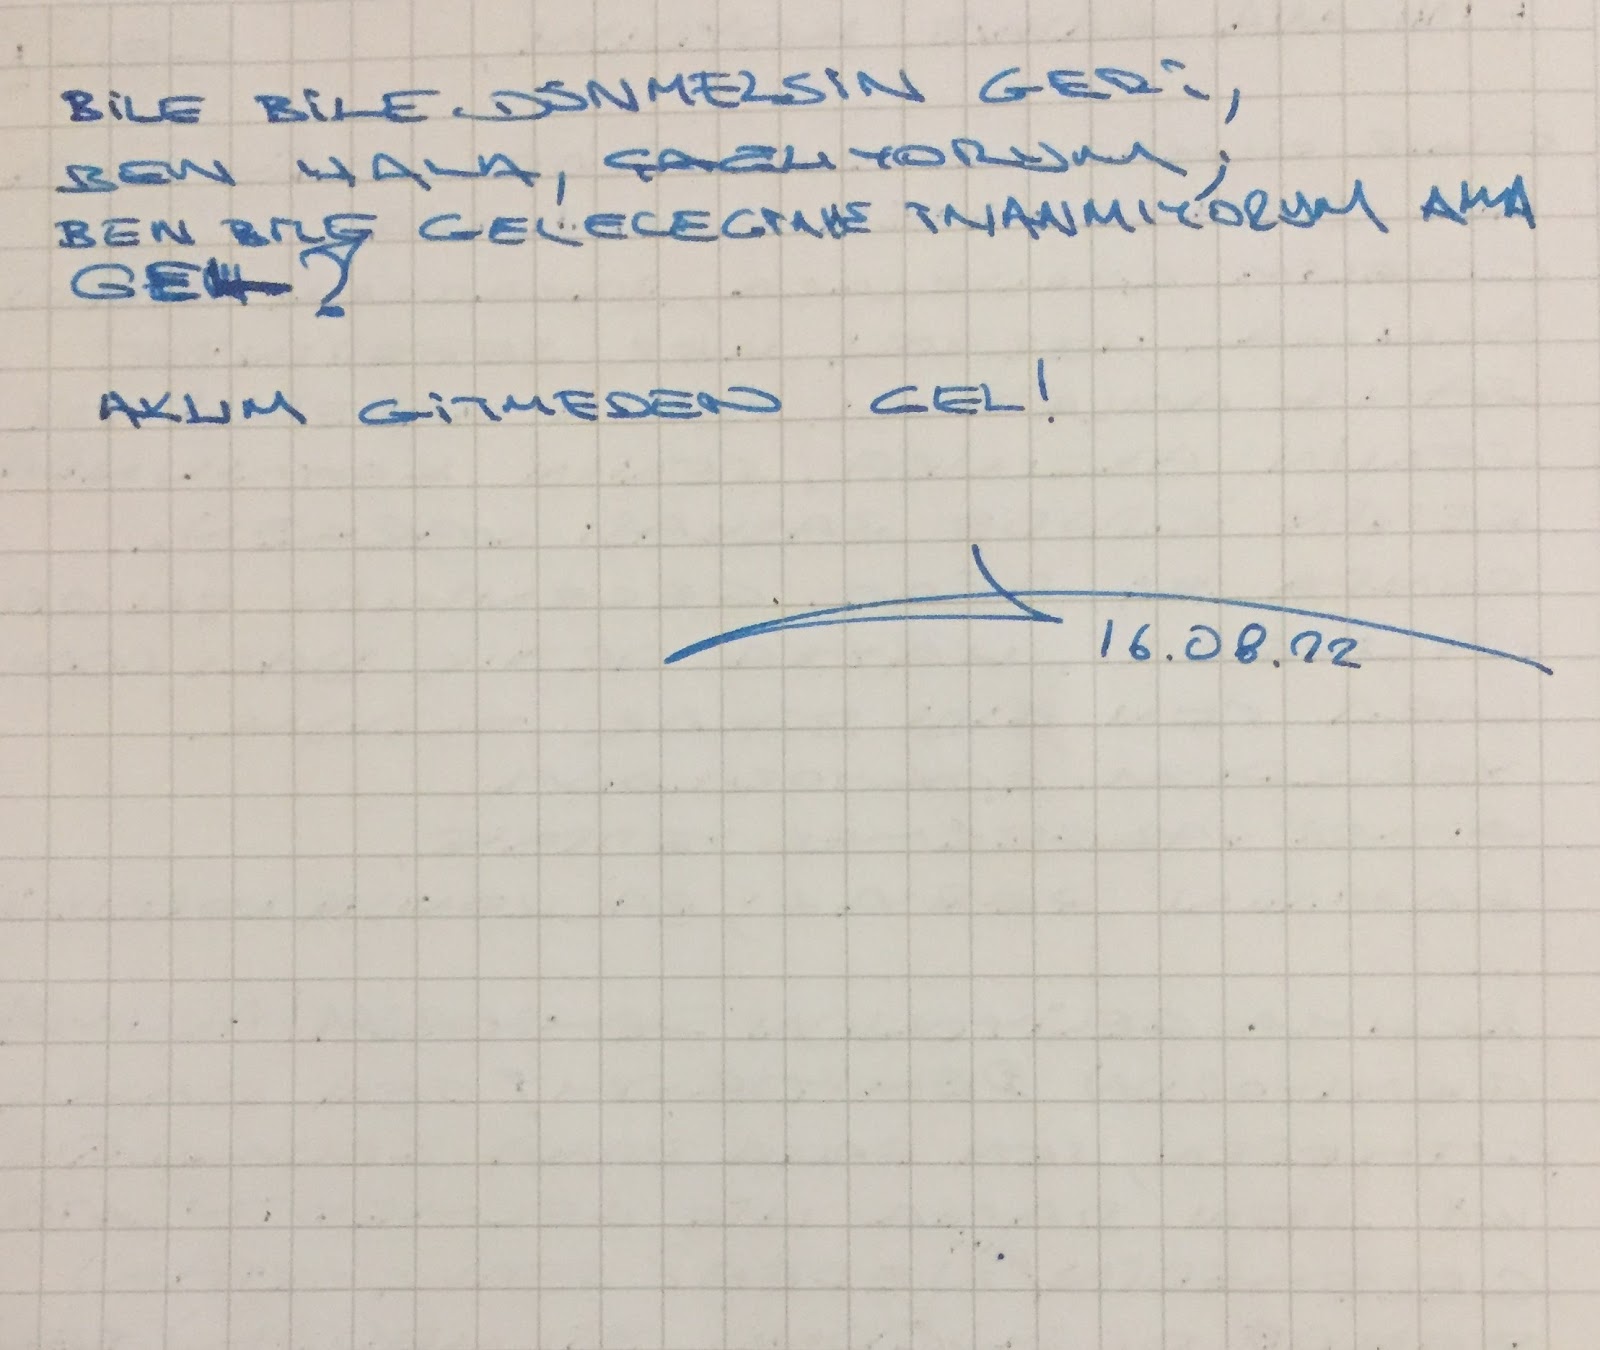 BİLE BİLE DÖNMEZSİN GERİ,
BEN HALA, ÇAĞLIYORUM,
BEN BİLE GELECEGİNE İNANMIYORUM AMA
GEL?
AKLIM GİTMEDEN GEL!
16.08.22